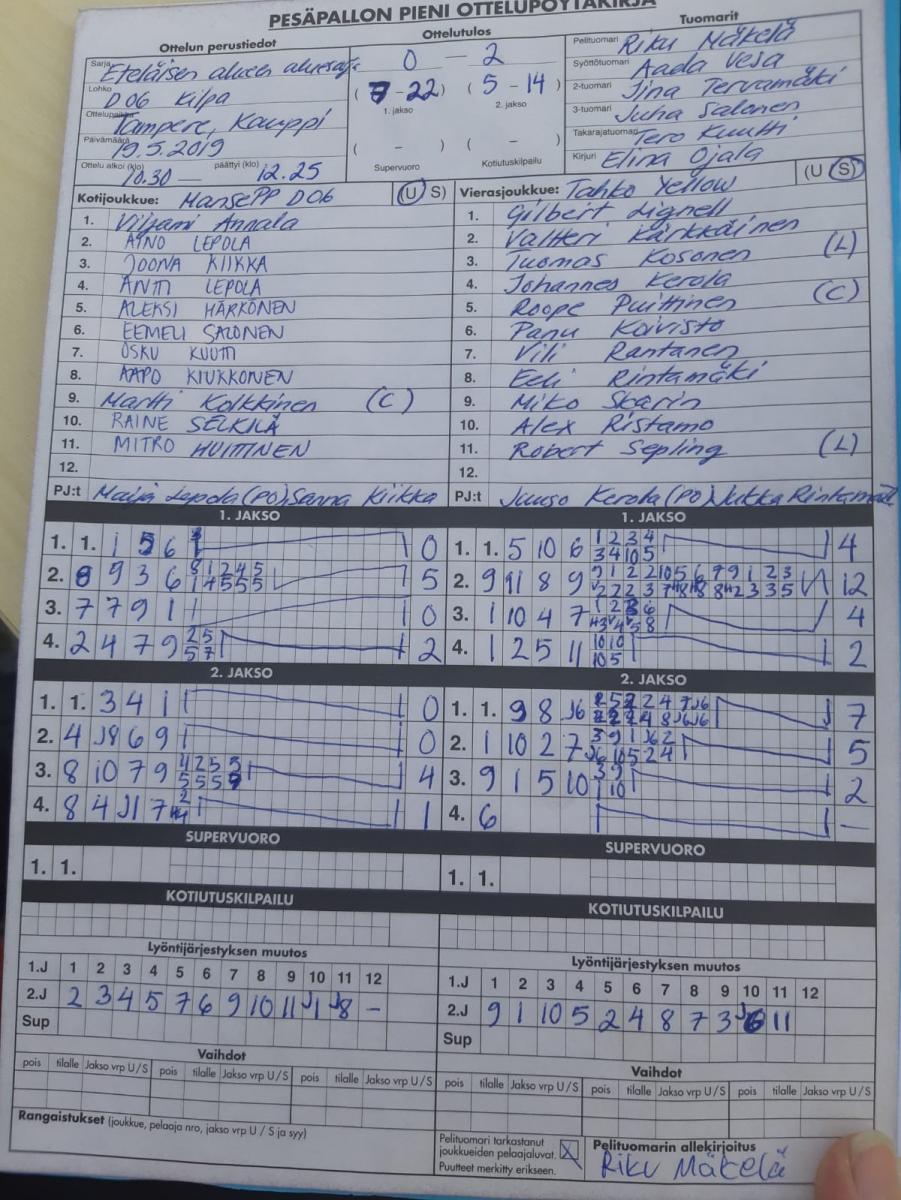 PESÄPALLON PIENI OTTELUPÖYTÄKIRJA
Ottelun perustiedot
Sarja Eteläisen alueen
Lohko D06 Kilpa
Ottelupaikka Tampere, Kauppi
Päivämäärä 19.5.2019
Ottelu alkoi (klo) 10.30 — päättyi (klo) 12.25
Ottelutulos
0 — 2
(7 - 22) (5 - 14)
1. jakso 2. jakso
( - ) ( - )
Supervuoro Kotiutuskilpailu
Tuomarit
Pelituomari Riku Mäkelä
Syöttötuomari Aada Vesa
2-tuomari Jina Tervamäki
3-tuomari Juha Salonen
Takarajatuomari Tero Kuutti
Kirjuri Elina Ojala
Kotijoukkue: MansePP D06 (U S)
1. Viljami Annala
2. AINO LEPOLA
3. JOONA KIIKKA
4. ANTTI LEPOLA
5. ALEKSI HÄRKÖNEN
6. EEMELI SALONEN
7. OSKU KUUTTI
8. AAPO KIUKKONEN
9. Martti Kolkkinen (C)
10. RAINE SELKILÄ
11. MITRO HUITTINEN
12.
PJ:t Maija Lepola (PO), Sanna Kiikka
Vierasjoukkue: Tahko Yellow (U S)
1. Gilbert Lignell
2. Valtteri Kärkkäinen
3. Tuomas Kosonen (L)
4. Johannes Kerola
5. Roope Puittinen (C)
6. Panu Koivisto
7. Vili Rantanen
8. Eeli Rintamäki
9. Miko Skarin
10. Alex Ristamo
11. Robert Sepling (L)
12.
PJ:t Juuso Kerola (PO) Jukka Rintamäki
1. JAKSO
1. 1. 1 5 6 0
2. 9 3 6 5
3. 7 7 9 1 0
4. 2 4 7 9 2 5 5 7 2
1. JAKSO
1. 1. 5 10 6 1 2 3 4 3 4 10 5 4
2. 9 11 8 9 12
3. 1 10 4 7 4
4. 1 2 5 11 10 10 10 5 2
2. JAKSO
1. 1. 3 4 1 0
2. 4 J8 6 9 0
3. 8 10 7 9 4
4. 8 4 J1 7 1
2. JAKSO
1. 1. 9 8 J6 7
2. 1 10 2 7 5
3. 9 1 5 10 3 9 1 10 2
4. 6 —
SUPERVUORO
1. 1.
SUPERVUORO
1. 1.
KOTIUTUSKILPAILU
KOTIUTUSKILPAILU
Lyöntijärjestyksen muutos
1.J 1 2 3 4 5 6 7 8 9 10 11 12
2.J 2 3 4 5 7 6 9 10 11 J1 J8 -
Sup
Lyöntijärjestyksen muutos
1.J 1 2 3 4 5 6 7 8 9 10 11 12
2.J 9 1 10 5 2 4 8 7 3 J6 11
Sup
Vaihdot
pois tilalle Jakso vrp U/S pois tilalle Jakso vrp U/S pois tilalle Jakso vrp U/S
Vaihdot
pois tilalle Jakso vrp U/S pois tilalle Jakso vrp U/S pois tilalle Jakso vrp U/S
Rangaistukset (joukkue, pelaaja nro, jakso vrp U / S ja syy)
Pelituomari tarkastanut
joukkueiden pelaajaluvat. X
Puutteet merkitty erikseen.
Pelituomarin allekirjoitus
Riku Mäkelä